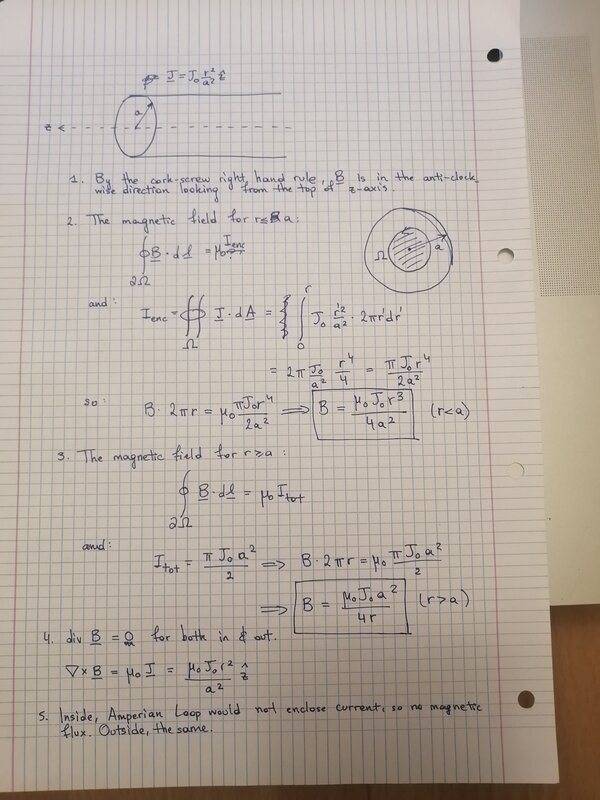 J = J₀ r²/a² ẑ
a
z <
1. By the cork-screw right hand rule, B is in the anti-clock
wise direction looking from the top of z-axis.
2. The magnetic field for r≤a:
∮_∂Ω B · dl = μ₀ I_enc
Ω a
and: I_enc = ∯_Ω J · dA = ∫₀^r J₀ r'²/a² · 2πr'dr'
= 2π J₀/a² r⁴/4 = πJ₀r⁴/2a²
so: B · 2πr = μ₀ πJ₀r⁴/2a² ⟹ B = μ₀J₀r³/4a² (r<a)
3. The magnetic field for r≥a:
∮_∂Ω B · dl = μ₀ I_tot
and: I_tot = πJ₀a²/2 ⟹ B · 2πr = μ₀ πJ₀a²/2
⟹ B = μ₀J₀a²/4r (r>a)
4. div B = 0 for both in & out.
∇×B = μ₀J = μ₀J₀r²/a² ẑ
5. Inside, Amperian Loop would not enclose current, so no magnetic
flux. Outside, the same.